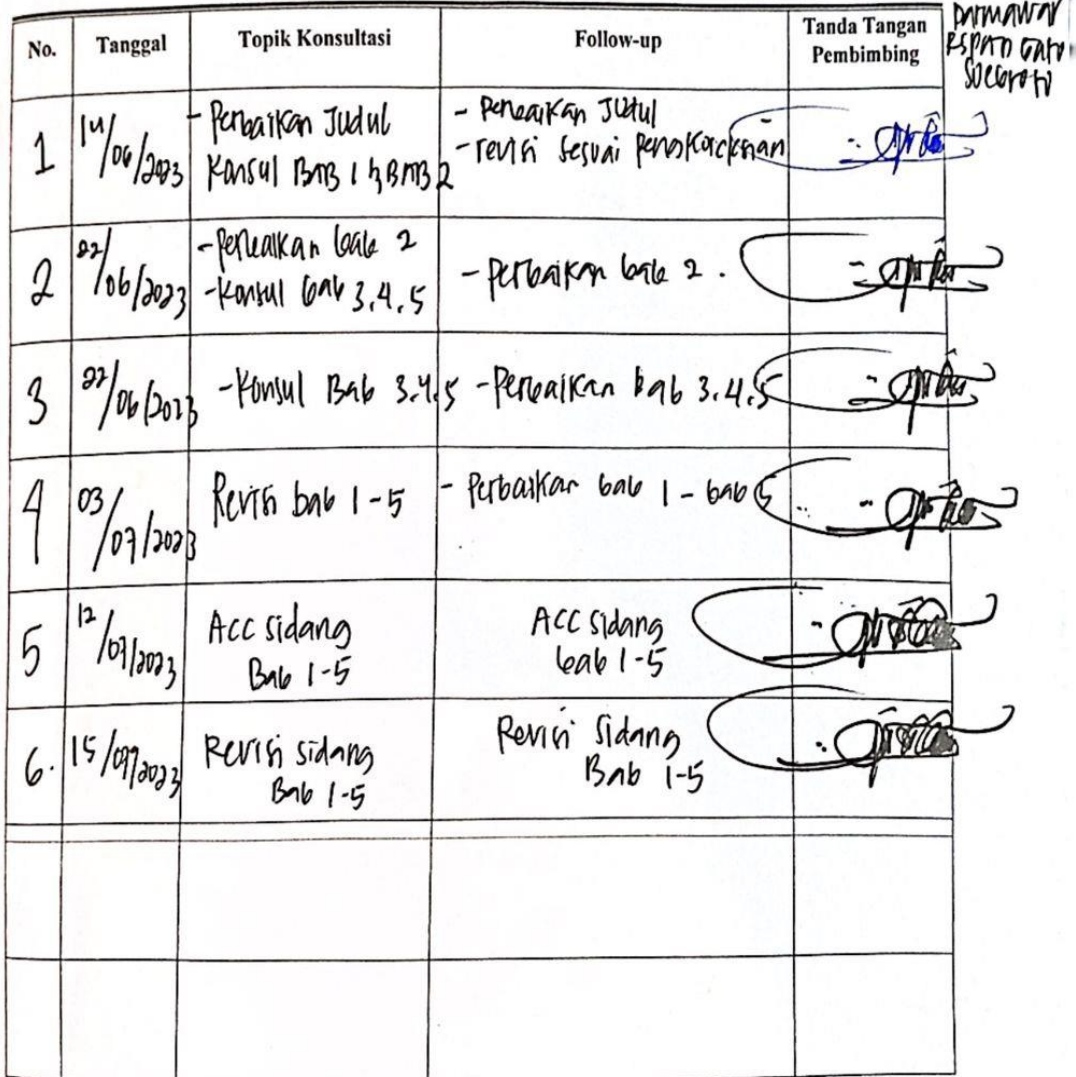 No. Tanggal Topik Konsultasi Follow-up Tanda Tangan Pembimbing
Darmawar
RSPAD Gato
Soebroto
1 14/06/2023
- Perbaikan Judul
Konsul BAB 1 & BAB 2
- Perbaikan Judul
- revisi sesuai
2 22/06/2023
- Perbaikan bab 2
- Konsul bab 3.4.5
- Perbaikan bab 2.
3 22/06/2023
- Konsul Bab 3.4.5
- Perbaikan bab 3.4.5
4 03/07/2023
Revisi bab 1-5
- Perbaikan bab 1 - bab 5
5 12/07/2023
ACC sidang
Bab 1-5
ACC sidang
bab 1-5
6. 15/07/2023
Revisi sidang
Bab 1-5
Revisi sidang
Bab 1-5